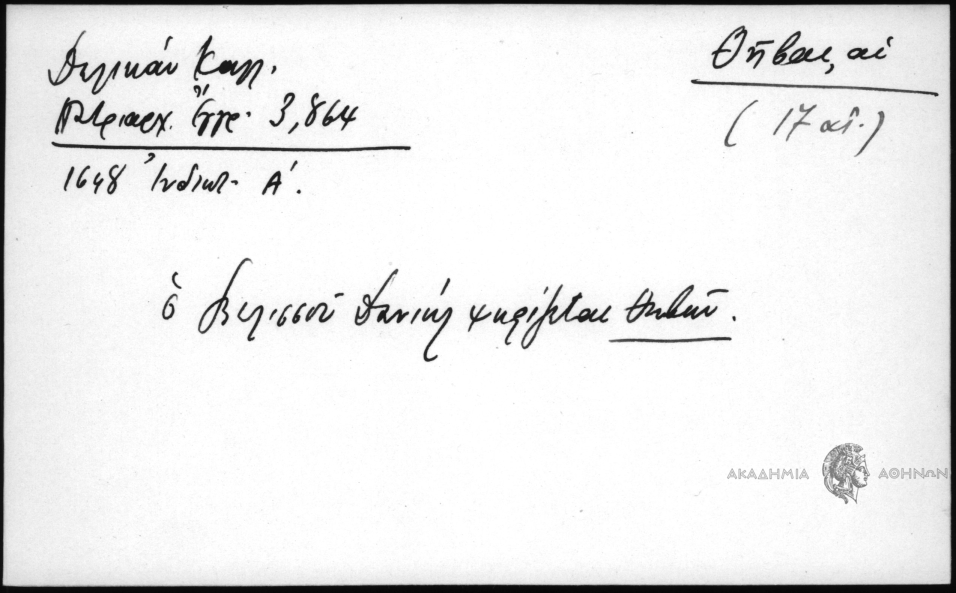 Δελικάν Καλ.
Πατριαρχ. Ἔγγρ. 3,864
1648 Ἰνδικτ. Α΄.
Θῆβαι, αἱ
(17 αἰ.)
ὁ Βελισσοῦ Δανιήλ ψηφίζεται Θηβῶν.
ΑΚΑΔΗΜΙΑ ΑΘΗΝΩΝ